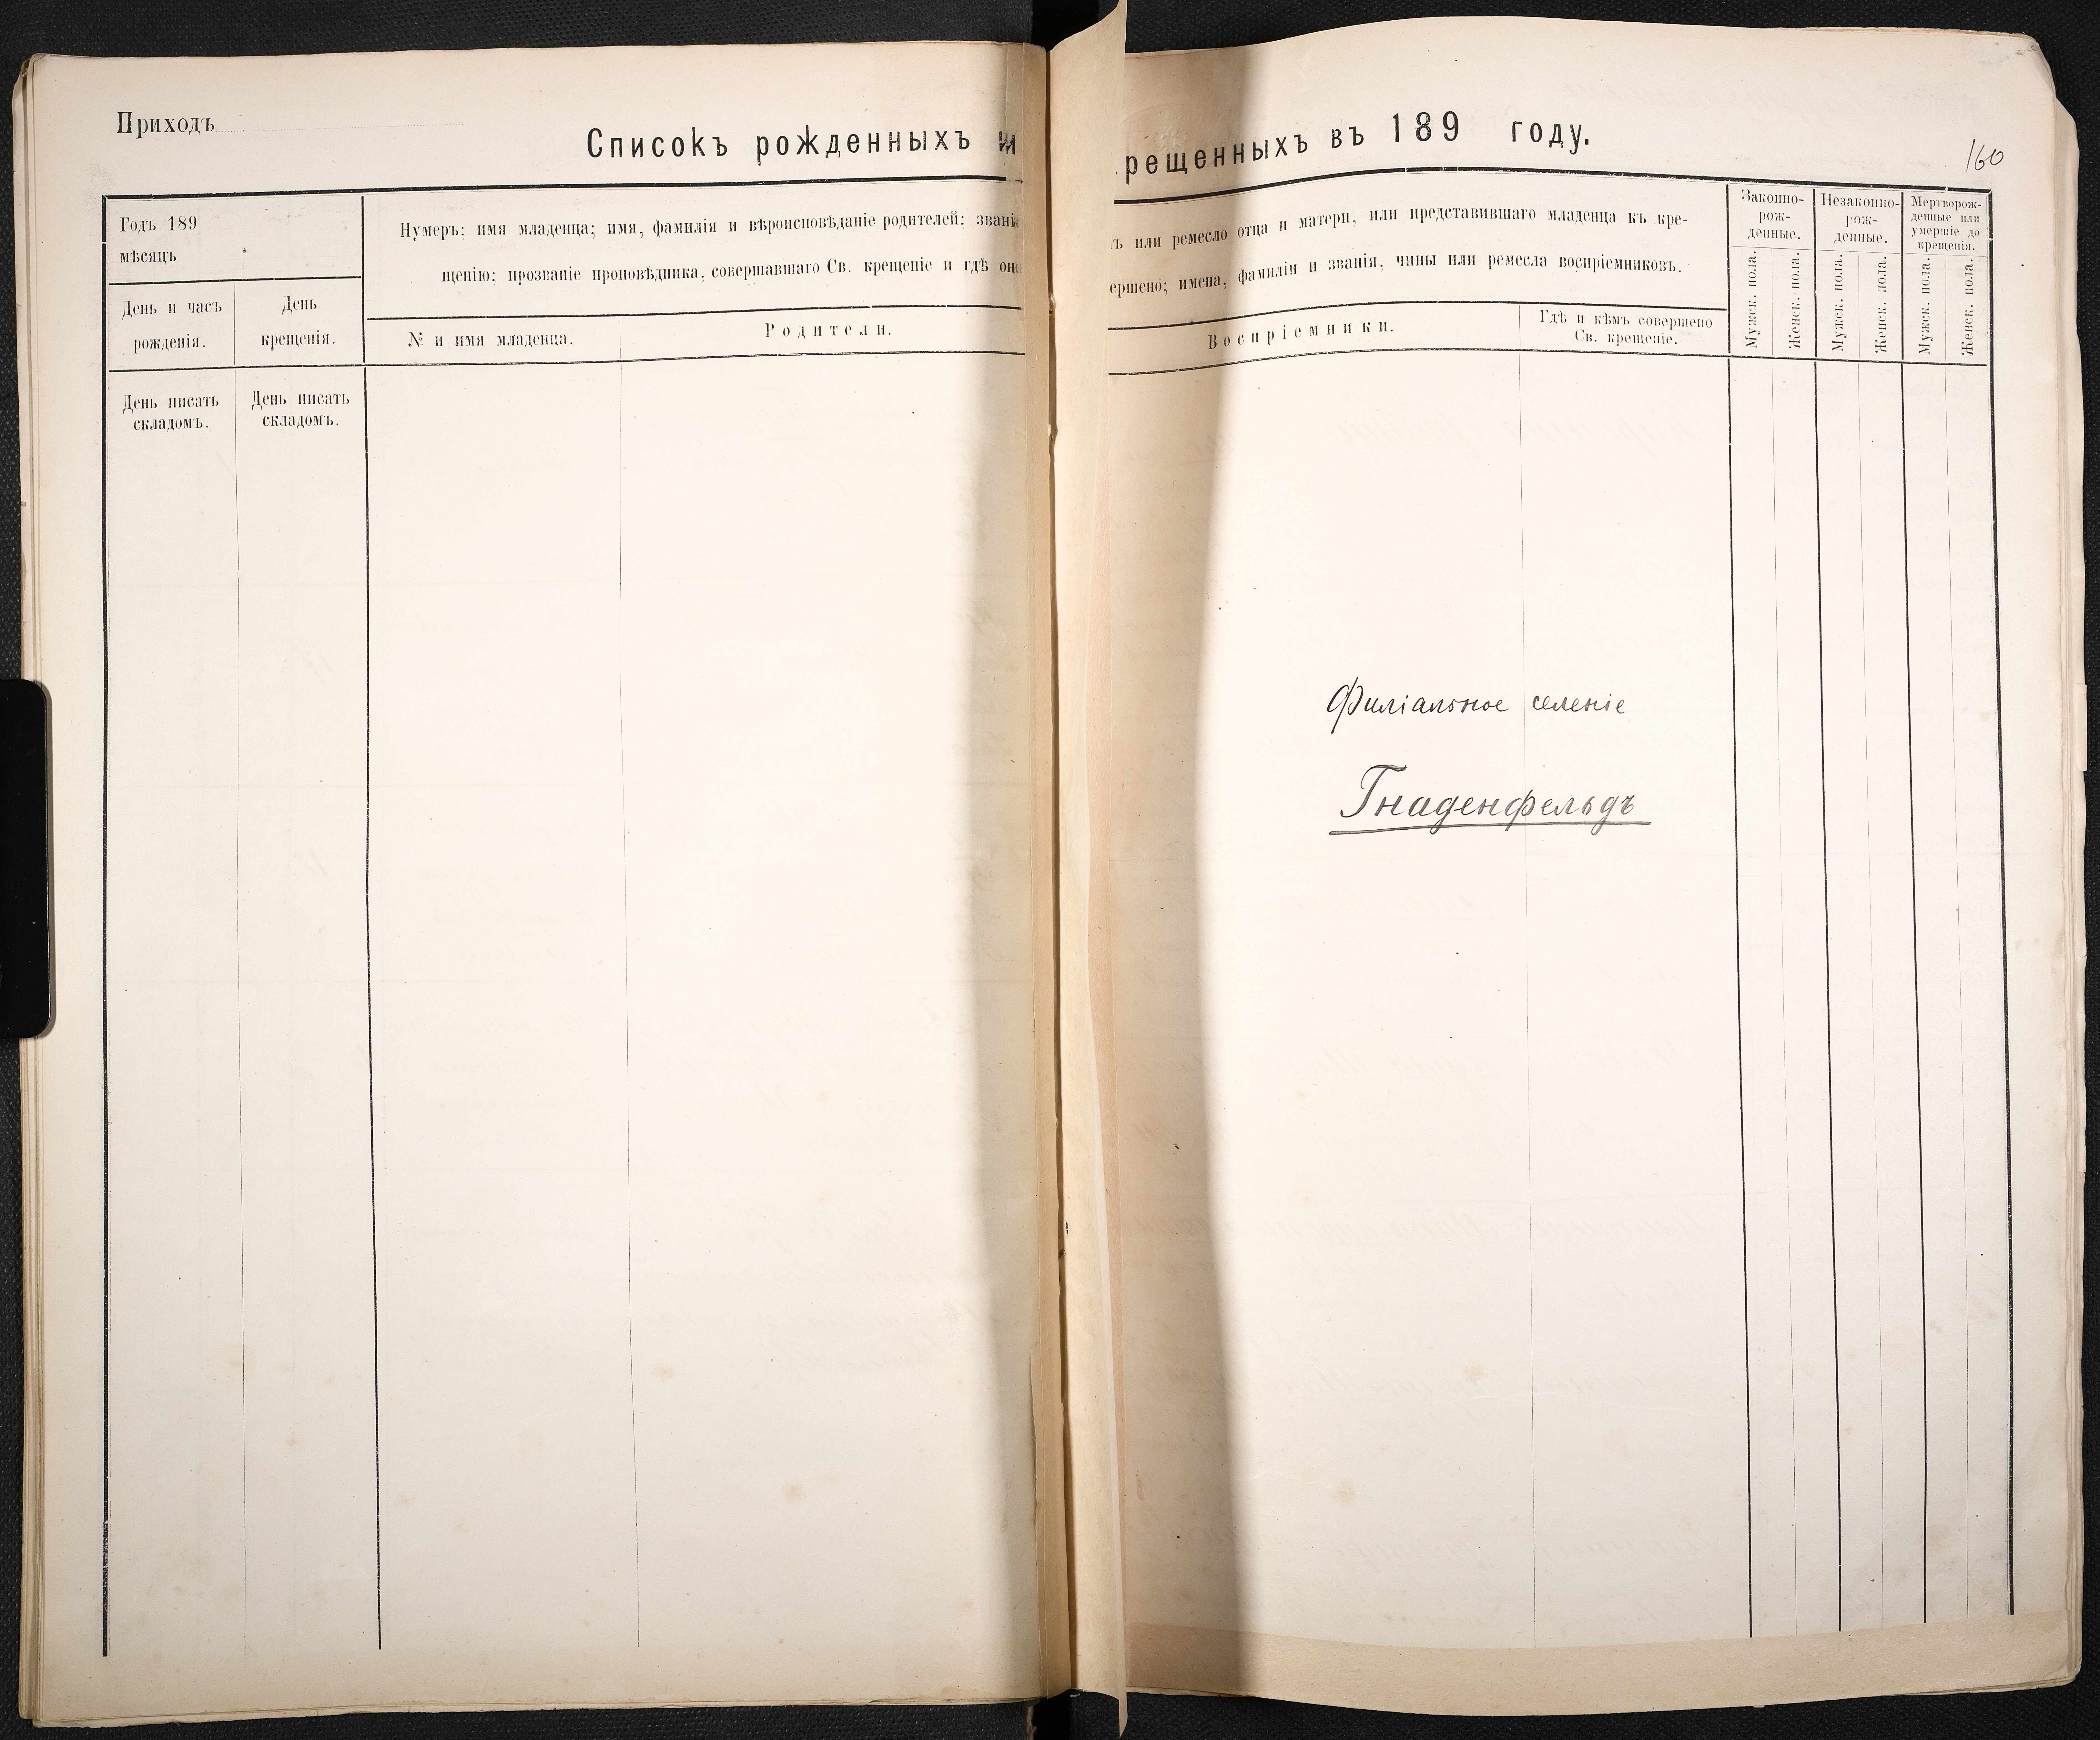 Приходъ
Списокъ рожденныхъ и
рещенныхъ въ 189 году.
160
Годъ 189
мѣсяцъ
День и часъ
рожденія.
День
крещенія.
Нумеръ; имя младенца; имя, фамилія и вѣроисповѣданіе родителей; звані
щенію; прозваніе проповѣдника, совершавшаго Св. крещеніе и гдѣ он
№ и имя младенца.
Родители.
ъ или ремесло отца и матери, или представившаго младенца къ кре-
ершено; имена, фамиліи и званія, чины или ремесла воспріемниковъ.
Воспріемники.
Гдѣ и кѣмъ совершено
Св. крещеніе.
Законно-
рож-
денные.
Незаконно-
рож-
денные.
Мертворож-
денные или
умершіе до
крещенія.
Мужск. пола.
Женск. пола.
Мужск. пола.
Женск. пола.
Мужск. пола.
Женск. пола.
День писать
складомъ.
День писать
складомъ.
Филіальное селеніе
Гнаденфельдъ